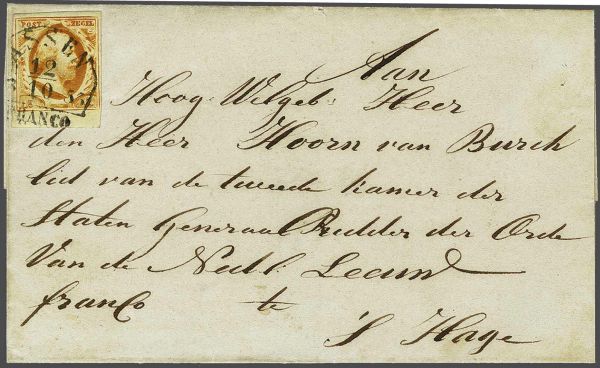 POST ZEGEL
ASSEN
12
10
FRANCO
Aan
Hoog Welgeb: Heer
den Heer Hoorn van Burch
lid van de tweede kamer der
Staten Generaal Ridder der Orde
Van de Nedl: Leeuw
franco te
's Hage